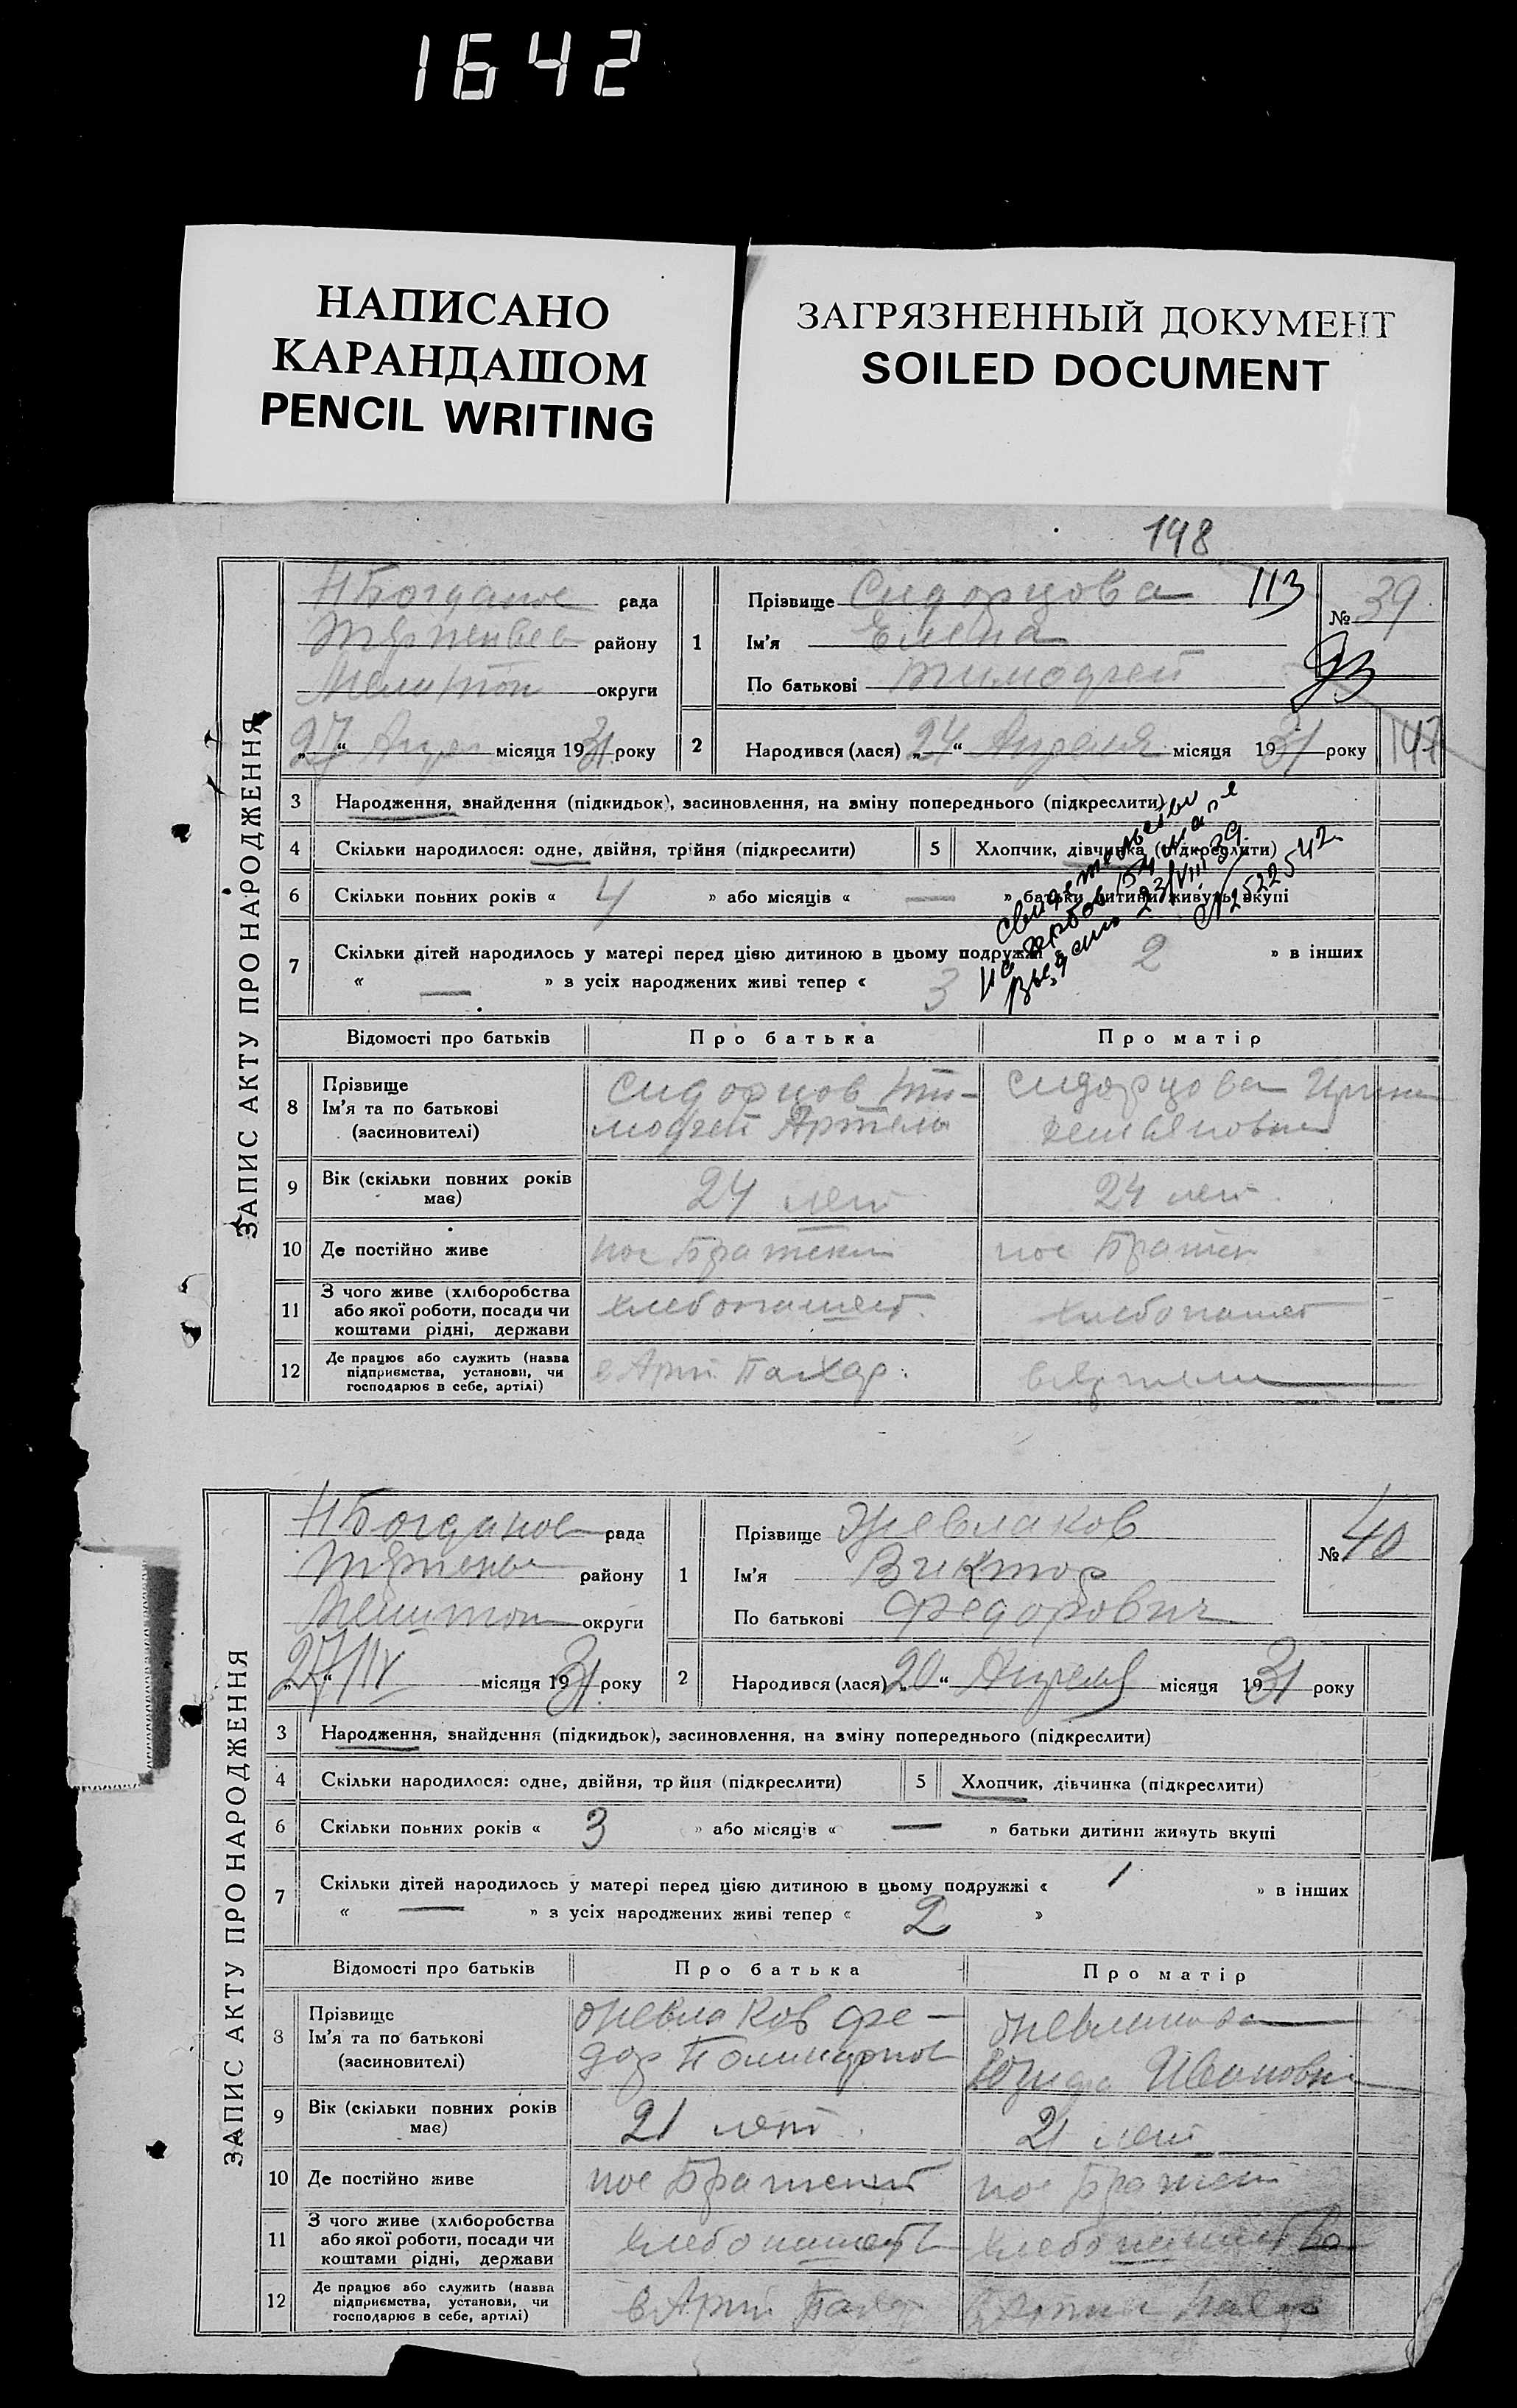 1642
НАПИСАНО
КАРАНДАШОМ
PENCIL WRITING
ЗАГРЯЗНЕННЫЙ ДОКУМЕНТ
SOILED DOCUMENT
198
ЗАПИС АКТУ ПРО НАРОДЖЕННЯ
НБогданов рада
района району
Мелитоп округи
„27“ Апрел місяця 1931 року
1
Прізвище Сидорцова 113
Ім'я Елена
По батькові Тимофей
№ 39
93
2 Народився (лася) „24“ Апреля місяця 1931 року
147
3 Народження, знайдення (підкидьок), засиновлення, на зміну попереднього (підкреслити)
4 Скільки народилося: одне, двійня, трійня (підкреслити)
5 Хлопчик, дівчинка (підкреслити)
6 Скільки повних років « 4 » або місяців « — » батьки дитини живуть вкупі
7 Скільки дітей народилось у матері перед цією дитиною в цьому подружжі « 2 » в інших
« — » з усіх народжених живі тепер « 3
свидетельство
Выдано 23/VIII 39
Відомості про батьків
Про батька
Про матір
8 Прізвище
Ім'я та по батькові
(засиновителі)
Сидорцов Ти-
мофей Артемо
Сидорцова Ирина
9 Вік (скільки повних років
має)
24 лет
24 лет
10 Де постійно живе
пос Братски
пос Братск
11 З чого живе (хліборобства
або якої роботи, посади чи
коштами рідні, держави
хлебопашест.
хлебопашест
12 Де працює або служить (назва
підприємства, установи, чи
господарює в себе, артілі)
в Арт. Пахар.
в Артели
ЗАПИС АКТУ ПРО НАРОДЖЕННЯ
НБогданов рада
району
Мелитоп округи
„27“/IV місяця 1931 року
1
Прізвище Жевлаков
Ім'я Виктор
По батькові Федорович
№ 40
2 Народився (лася) „20“ Апреля місяця 1931 року
3 Народження, знайдення (підкидьок), засиновлення, на зміну попереднього (підкреслити)
4 Скільки народилося: одне, двійня, трійня (підкреслити)
5 Хлопчик, дівчинка (підкреслити)
6 Скільки повних років « 3 » або місяців « — » батьки дитини живуть вкупі
7 Скільки дітей народилось у матері перед цією дитиною в цьому подружжі « 1 » в інших
« — » з усіх народжених живі тепер « 2 »
Відомості про батьків
Про батька
Про матір
8 Прізвище
Ім'я та по батькові
(засиновителі)
Жевлаков Фе-
дор Поликарпов
Жевлакова
Ивановн
9 Вік (скільки повних років
має)
21 лет.
21 лет
10 Де постійно живе
пос Братский
пос Братск
11 З чого живе (хліборобства
або якої роботи, посади чи
коштами рідні, держави
хлебопашеств
хлебопашество
12 Де працює або служить (назва
підприємства, установи, чи
господарює в себе, артілі)
в Арт. Пахар